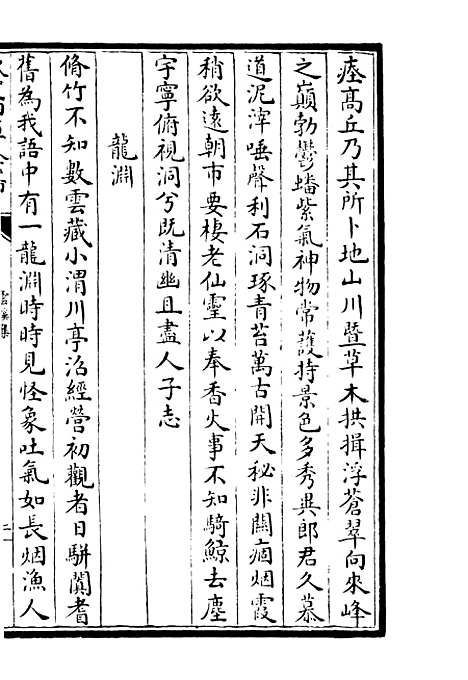 瘞高丘乃其所卜地山川曁草木拱揖浮蒼翠向來峰
之巔勃鬱蟠紫氣神物常護持景色多秀異郎君久慕
道泥滓唾聲利石洞琢青苔萬古開天秘非關痼烟霞
稍欲遠朝市要棲老仙靈以奉香火事不知騎鯨去塵
宇寧俯視洞兮既清幽且盡人子志
龍淵
脩竹不知數雲藏小渭川亭沼經營初觀者日駢闐耆
舊為我語中有一龍淵時時見怪象吐氣如長烟漁人
雲溪集